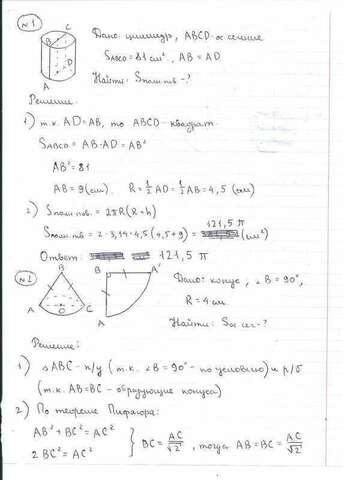 №1
C
B
O
D
A
Дано: цилиндр, ABCD - ос сечение
SABCD = 81 см², AB = AD
Найти: Sполн пов - ?
Решение.
1) т.к. AD=AB, то ABCD - квадрат.
SABCD = AB·AD = AB²
AB² = 81
AB = 9 (см). R = 1/2 AD = 1/2 AB = 4,5 (см)
2) Sполн пов. = 2πR(R+h)
121,5 π
Sполн пов = 2·3,14·4,5(4,5+9) = (см²)
Ответ: 121,5 π
№2
B
A
O
C
B
A'
C
Дано: конус, ∠B = 90°,
R = 4 см.
Найти: Sос сеч - ?
Решение:
1) △ABC - п/у (т.к. ∠B = 90° - по условию) и р/б
(т.к. AB=BC - образующие конуса)
2) По теореме Пифагора:
AB² + BC² = AC²
2BC² = AC²
} BC = AC/√2, тогда AB = BC = AC/√2